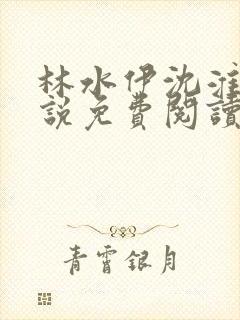 林水伊沈淮
說免費閱讀
青霄銀月